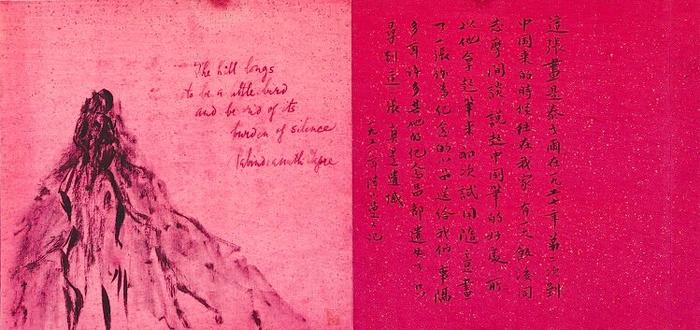 The hill longs
to be a little bird
and be rid of its
burden of silence
Rabindranath Tagore
這張畫是泰戈爾在一九二七年第二次到
中國來的時候住在我家有天飯後同
志摩閒談說起中國筆的好處所
以他拿起筆來初次試用隨意畫
了一張紀念的小品送給我們事隔
多年許多其他的紀念品都遺失了只
尋到這張真是遺憾